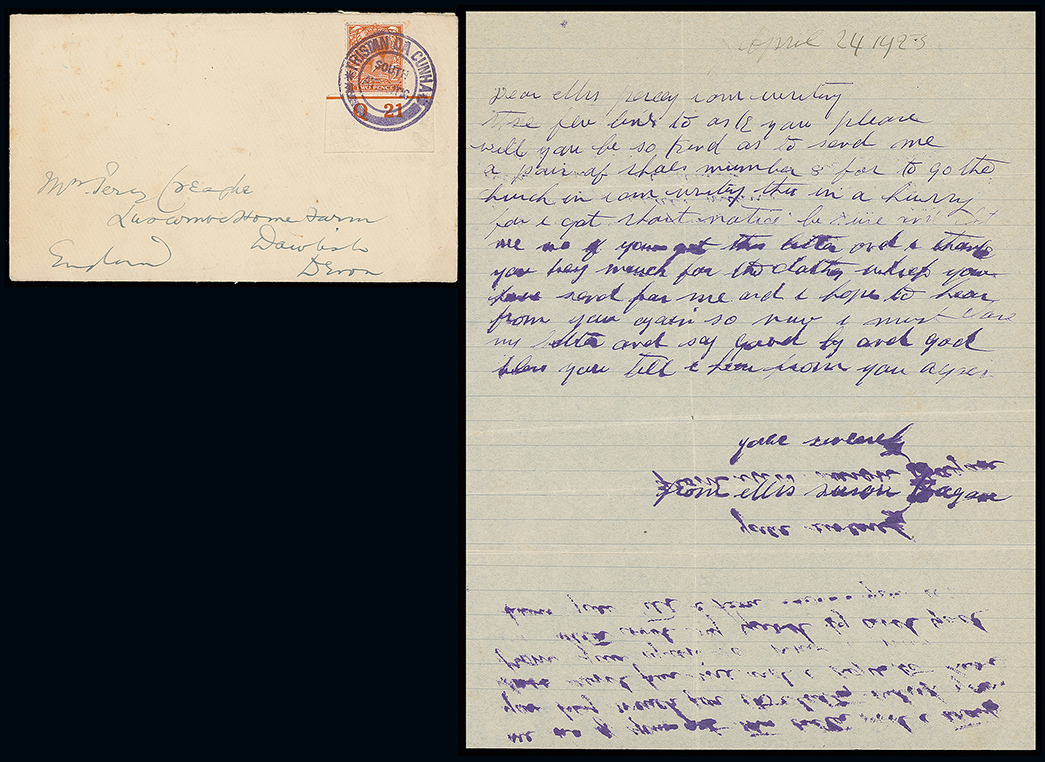 TRISTAN DA CUNHA
SOUTH
TWO PENCE
Q 21
Mrs. Percy Creaghe
Luscombe Home Farm
Dawlish
England Devon
April 24 1923
Dear Mrs percey i am writing
these few lines to ask you please
will you be so kind as to send me
a pair of shoes number 8 for to go the
church in i am writing this in a hurry
for i got short notice be sure and let
me no if you get this letter and i thank
you very much for the clothes which you
have send for me and i hope to hear
from you again so now i must close
my letter and say good by and god
bless you till i hear from you again
your sincerely
from Mrs susan Hagan